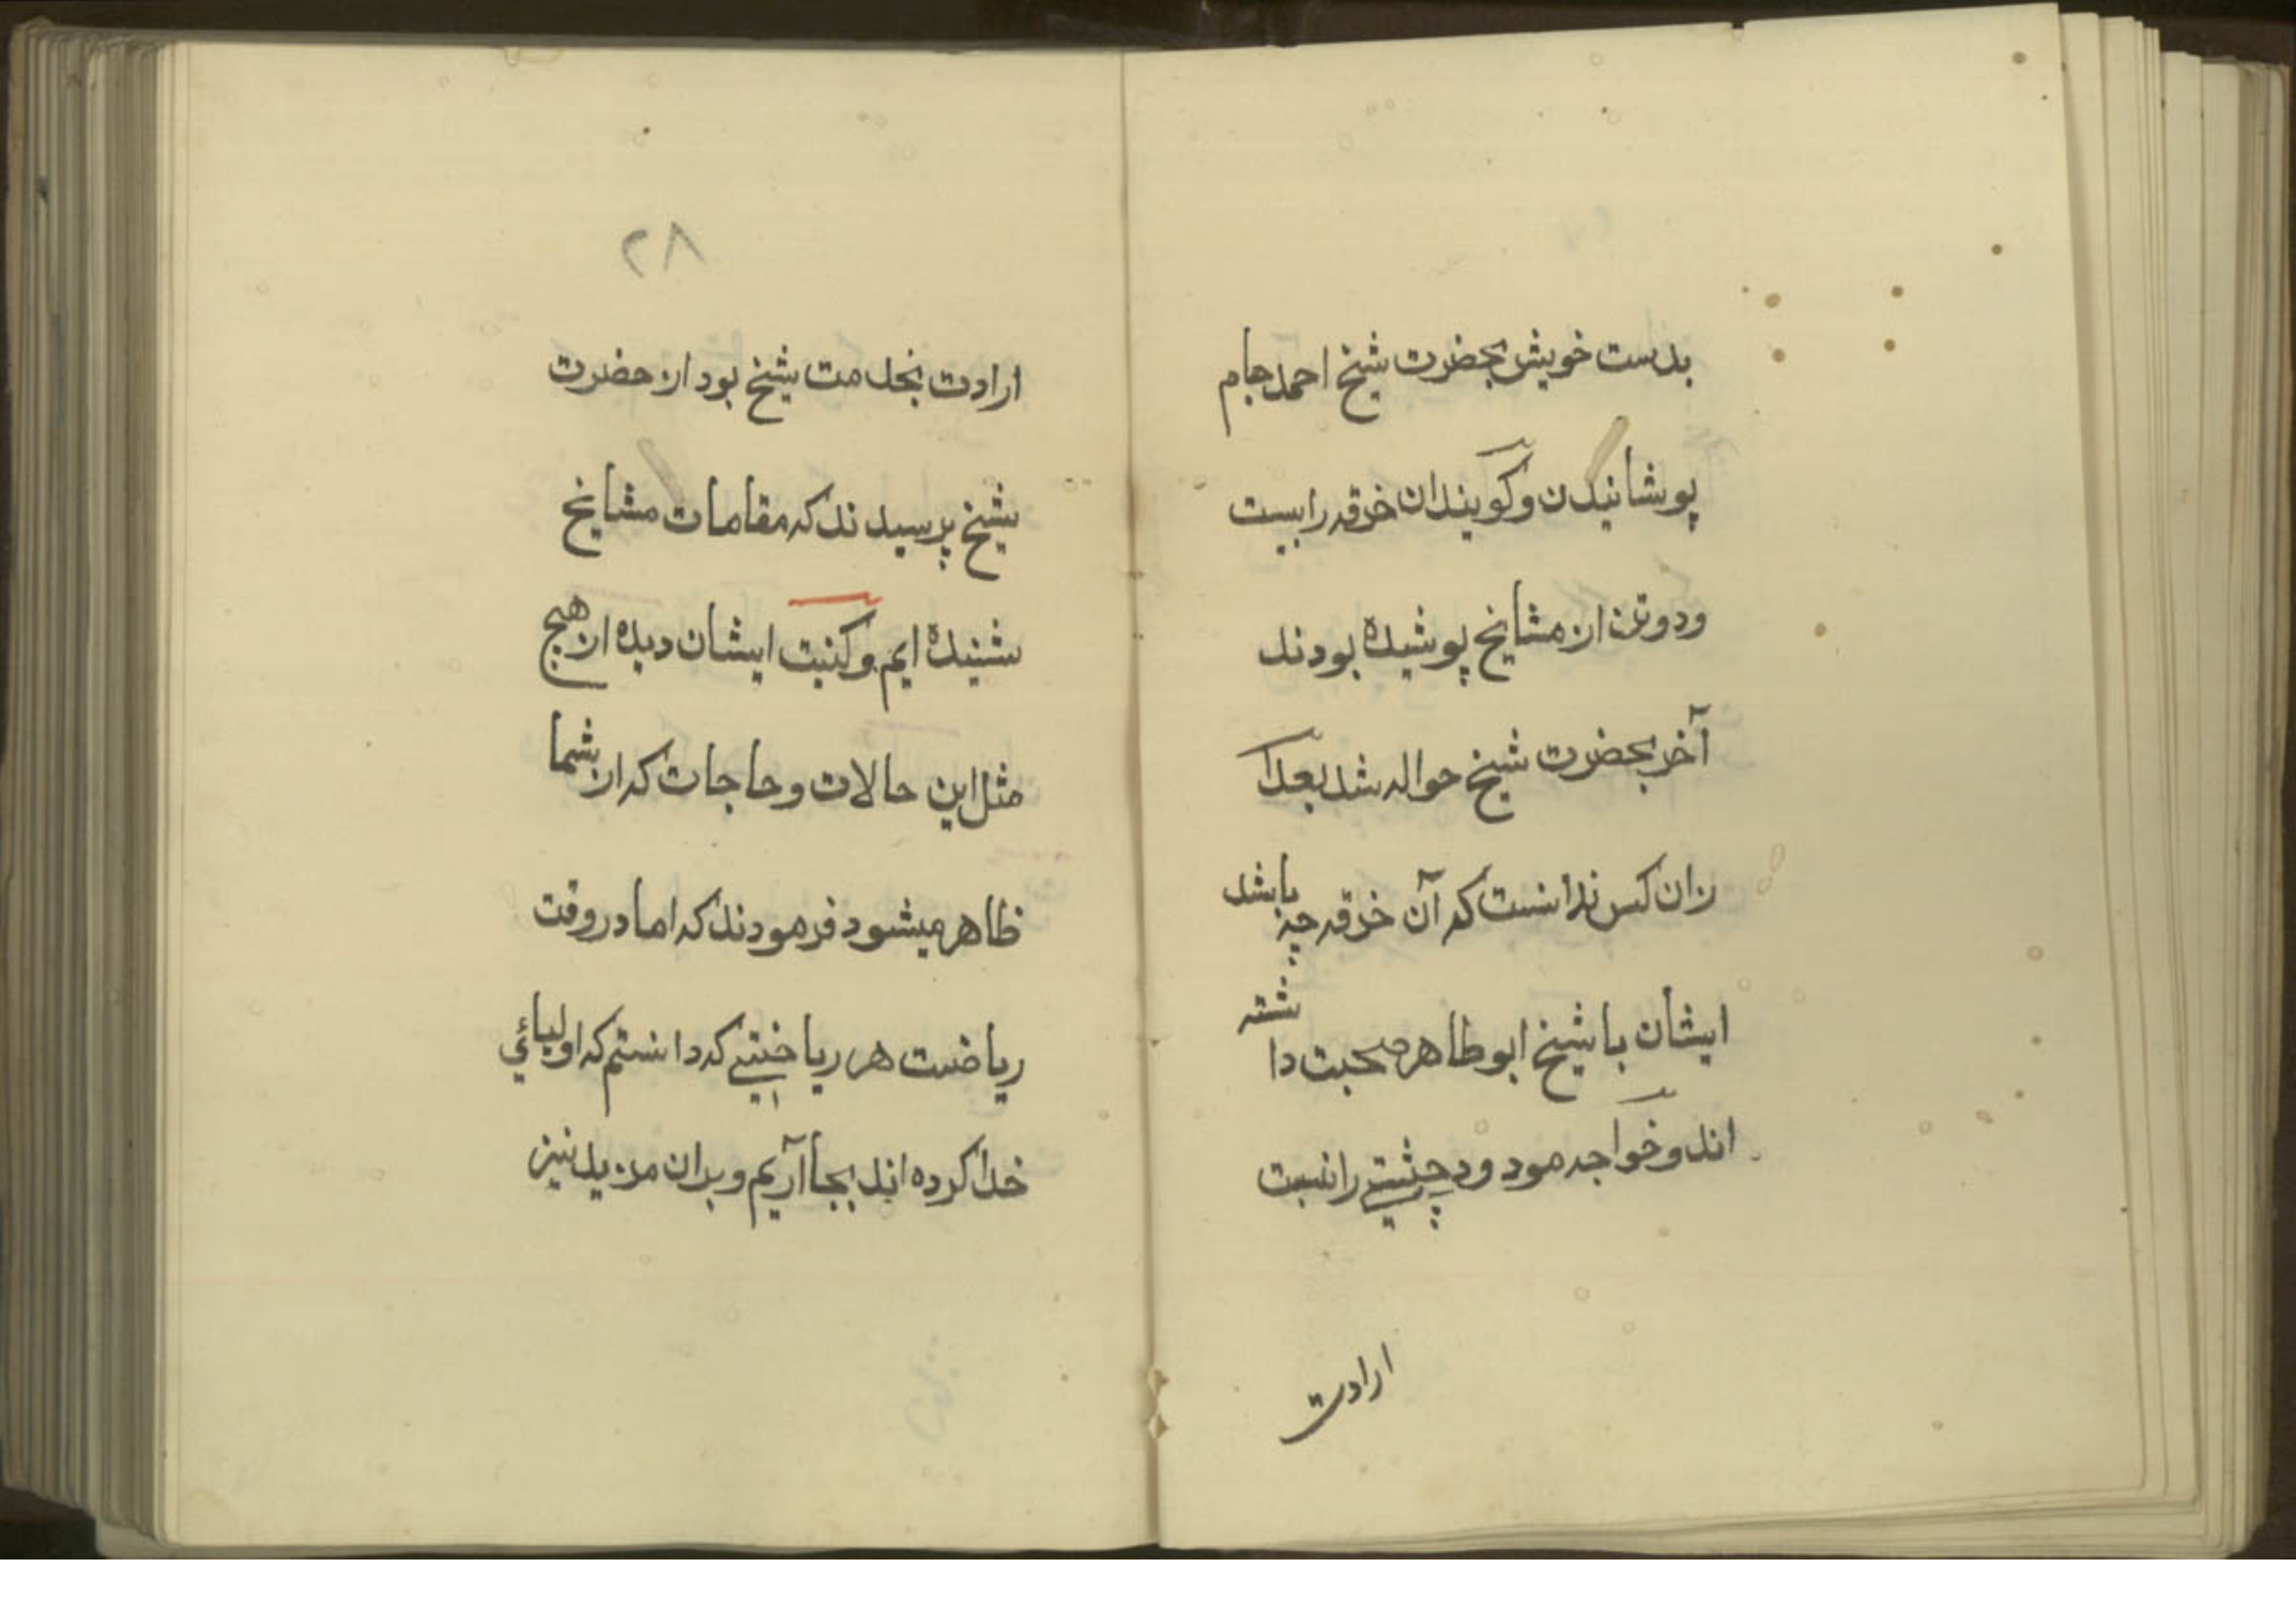 بدست خویش بحضرت شیخ احمد جام
پوشانیدن و گویند ان خرقه را بیست
و دو تن از مشایخ پوشیده بودند
آخر بحضرت شیخ حواله شد بعد ا
زان کس ندانست که آن خرقه چه باشد
ایشان با شیخ ابو طاهر صحبت داشته
اند و خواجه مودود چشتی را نسبت
ارادت
۲۸
ارادت بخدمت شیخ بود از حضرت
شیخ پرسیدند که مقامات مشایخ
شنیده ایم و کتبت ایشان دیده از هیچ
مثل این حالات و حاجات که از شما
ظاهر میشود فرمودند که اما در وقت
ریاضت هر ریاضتی که دانستم که اولیائی
خدا کرده اند بجا آریم و بران مزید نیز